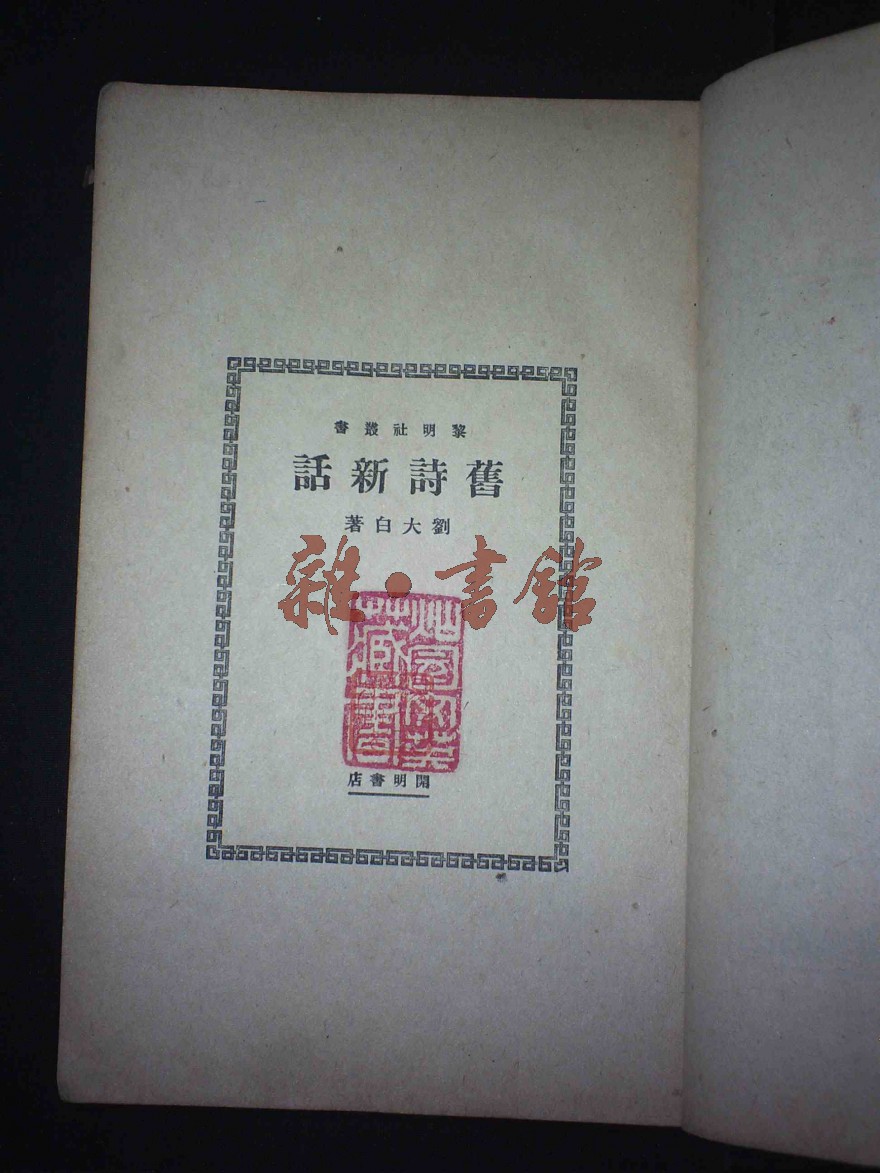 黎明社叢書
舊詩新話
劉大白著
雜·書館
藏書
開明書店